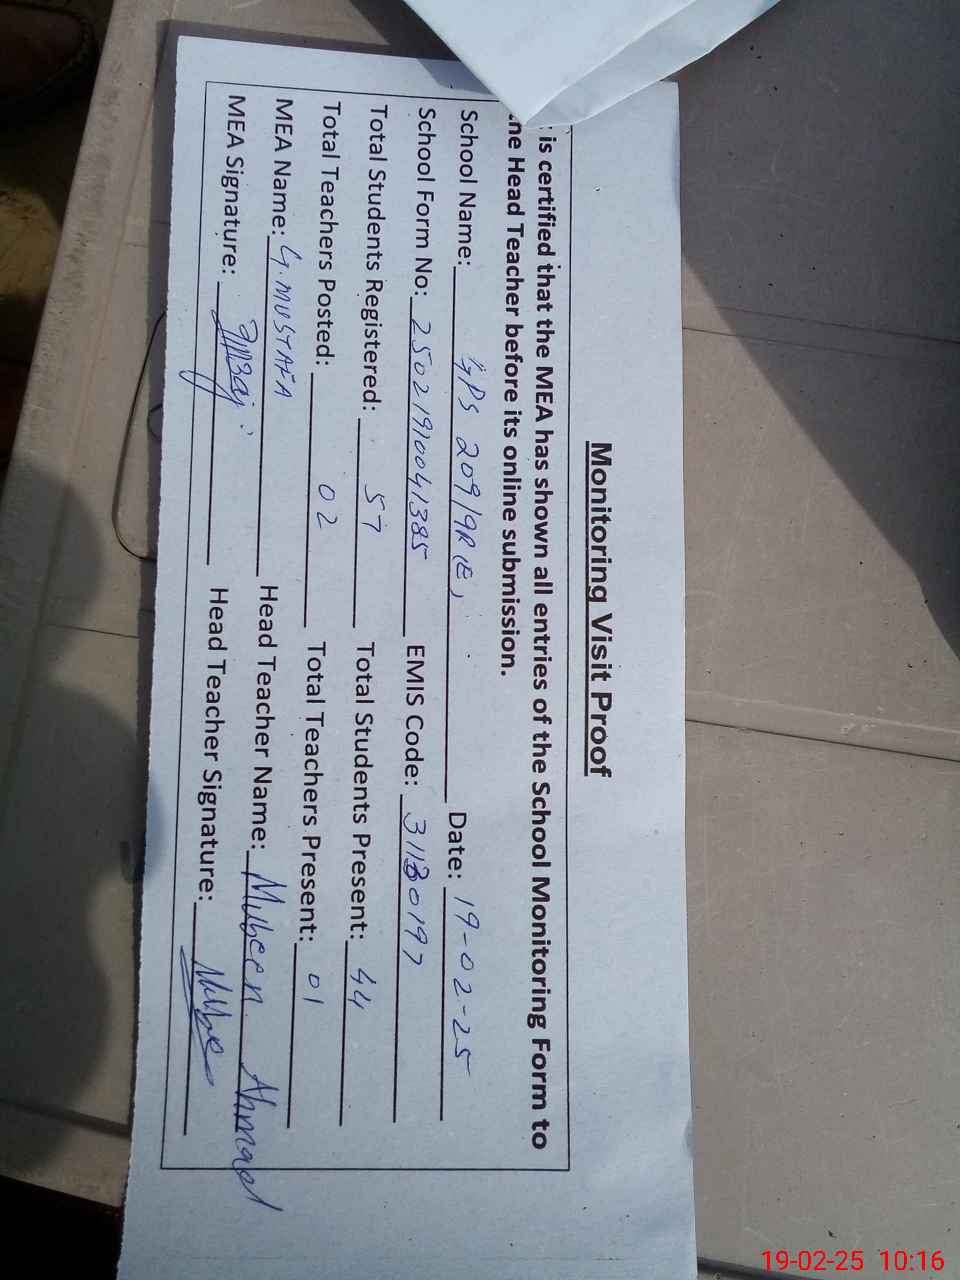 Monitoring Visit Proof
: is certified that the MEA has shown all entries of the School Monitoring Form to
the Head Teacher before its online submission.
School Name: GPS 209/9R (E) Date: 19-02-25
School Form No: 25021910041385 EMIS Code: 31130197
Total Students Registered: 57 Total Students Present: 44
Total Teachers Posted: 02 Total Teachers Present: 01
MEA Name: G.MUSTAFA Head Teacher Name: Mubeen Ahmad
MEA Signature: Head Teacher Signature:
19-02-25 10:16